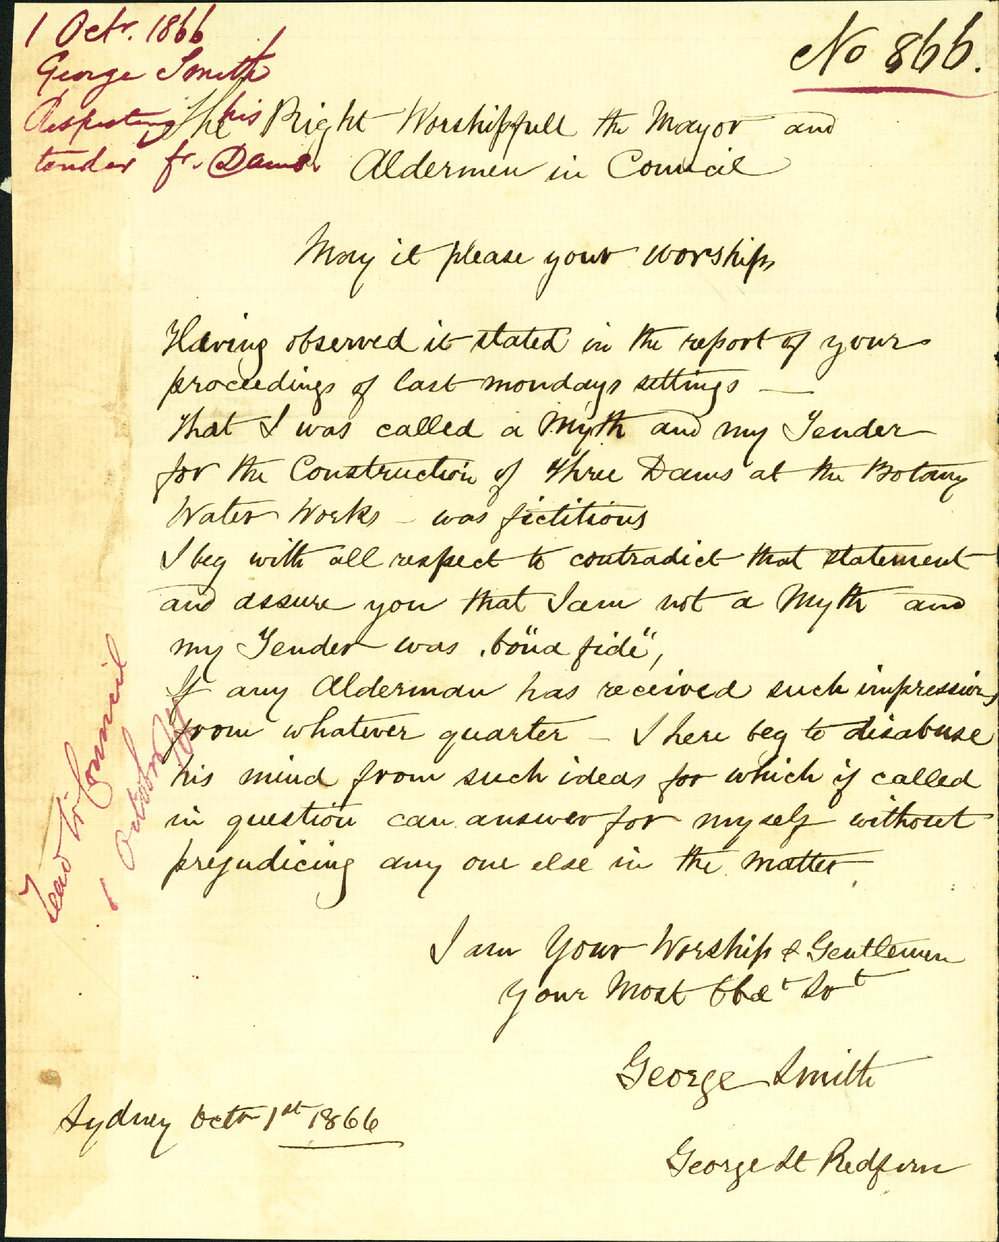 1 Octr. 1866
George Smith
Respecting his
tender fr. Dams.
No 866.
The Right Worshipfull the Mayor and
Aldermen in Council
May it please your Worships
Having observed it stated in the report of your
proceedings of last mondays sittings —
that I was called a Myth and my Tender
for the Construction of three Dams at the Botany
Water Works – was fictitious
I beg with all respect to contradict that statement
and assure you that I am not a Myth and
my Tender was "bona fide",
If any Alderman has received such impression,
from whatever quarter – I here beg to disabuse
his mind from such ideas for which if called
in question can answer for myself without
prejudicing any one else in the matter.
I am Your Worship & Gentlemen
Your Most Obdt Svt
George Smith
George St Redfern
Sydney Octr 1st 1866
read to Council
1 October